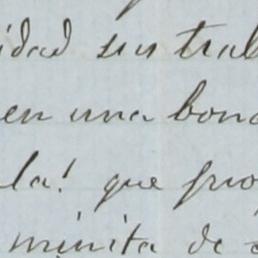 idad sus trab
en una bond
la! que pro
minita de